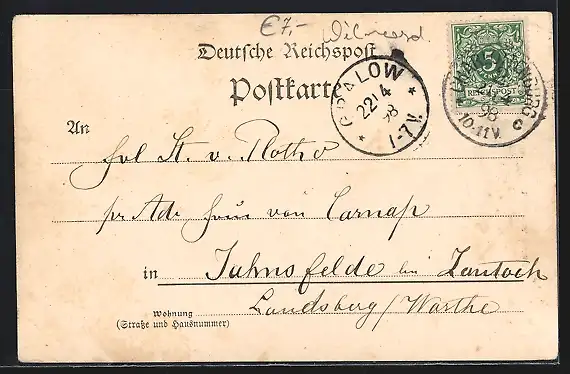 €7,- Wilmersd.
Deutsche Reichspost
Postkarte
GRALOW
22/4
98
1-7V.
CHARLOTTENBURG
98
10-11V.
5
REICHSPOST
An
Frl. A. v. Rotho
pr Adr Frau von Carnap
in Jahnsfelde bei Zantoch
Landsberg/Warthe
Wohnung
(Straße und Hausnummer)